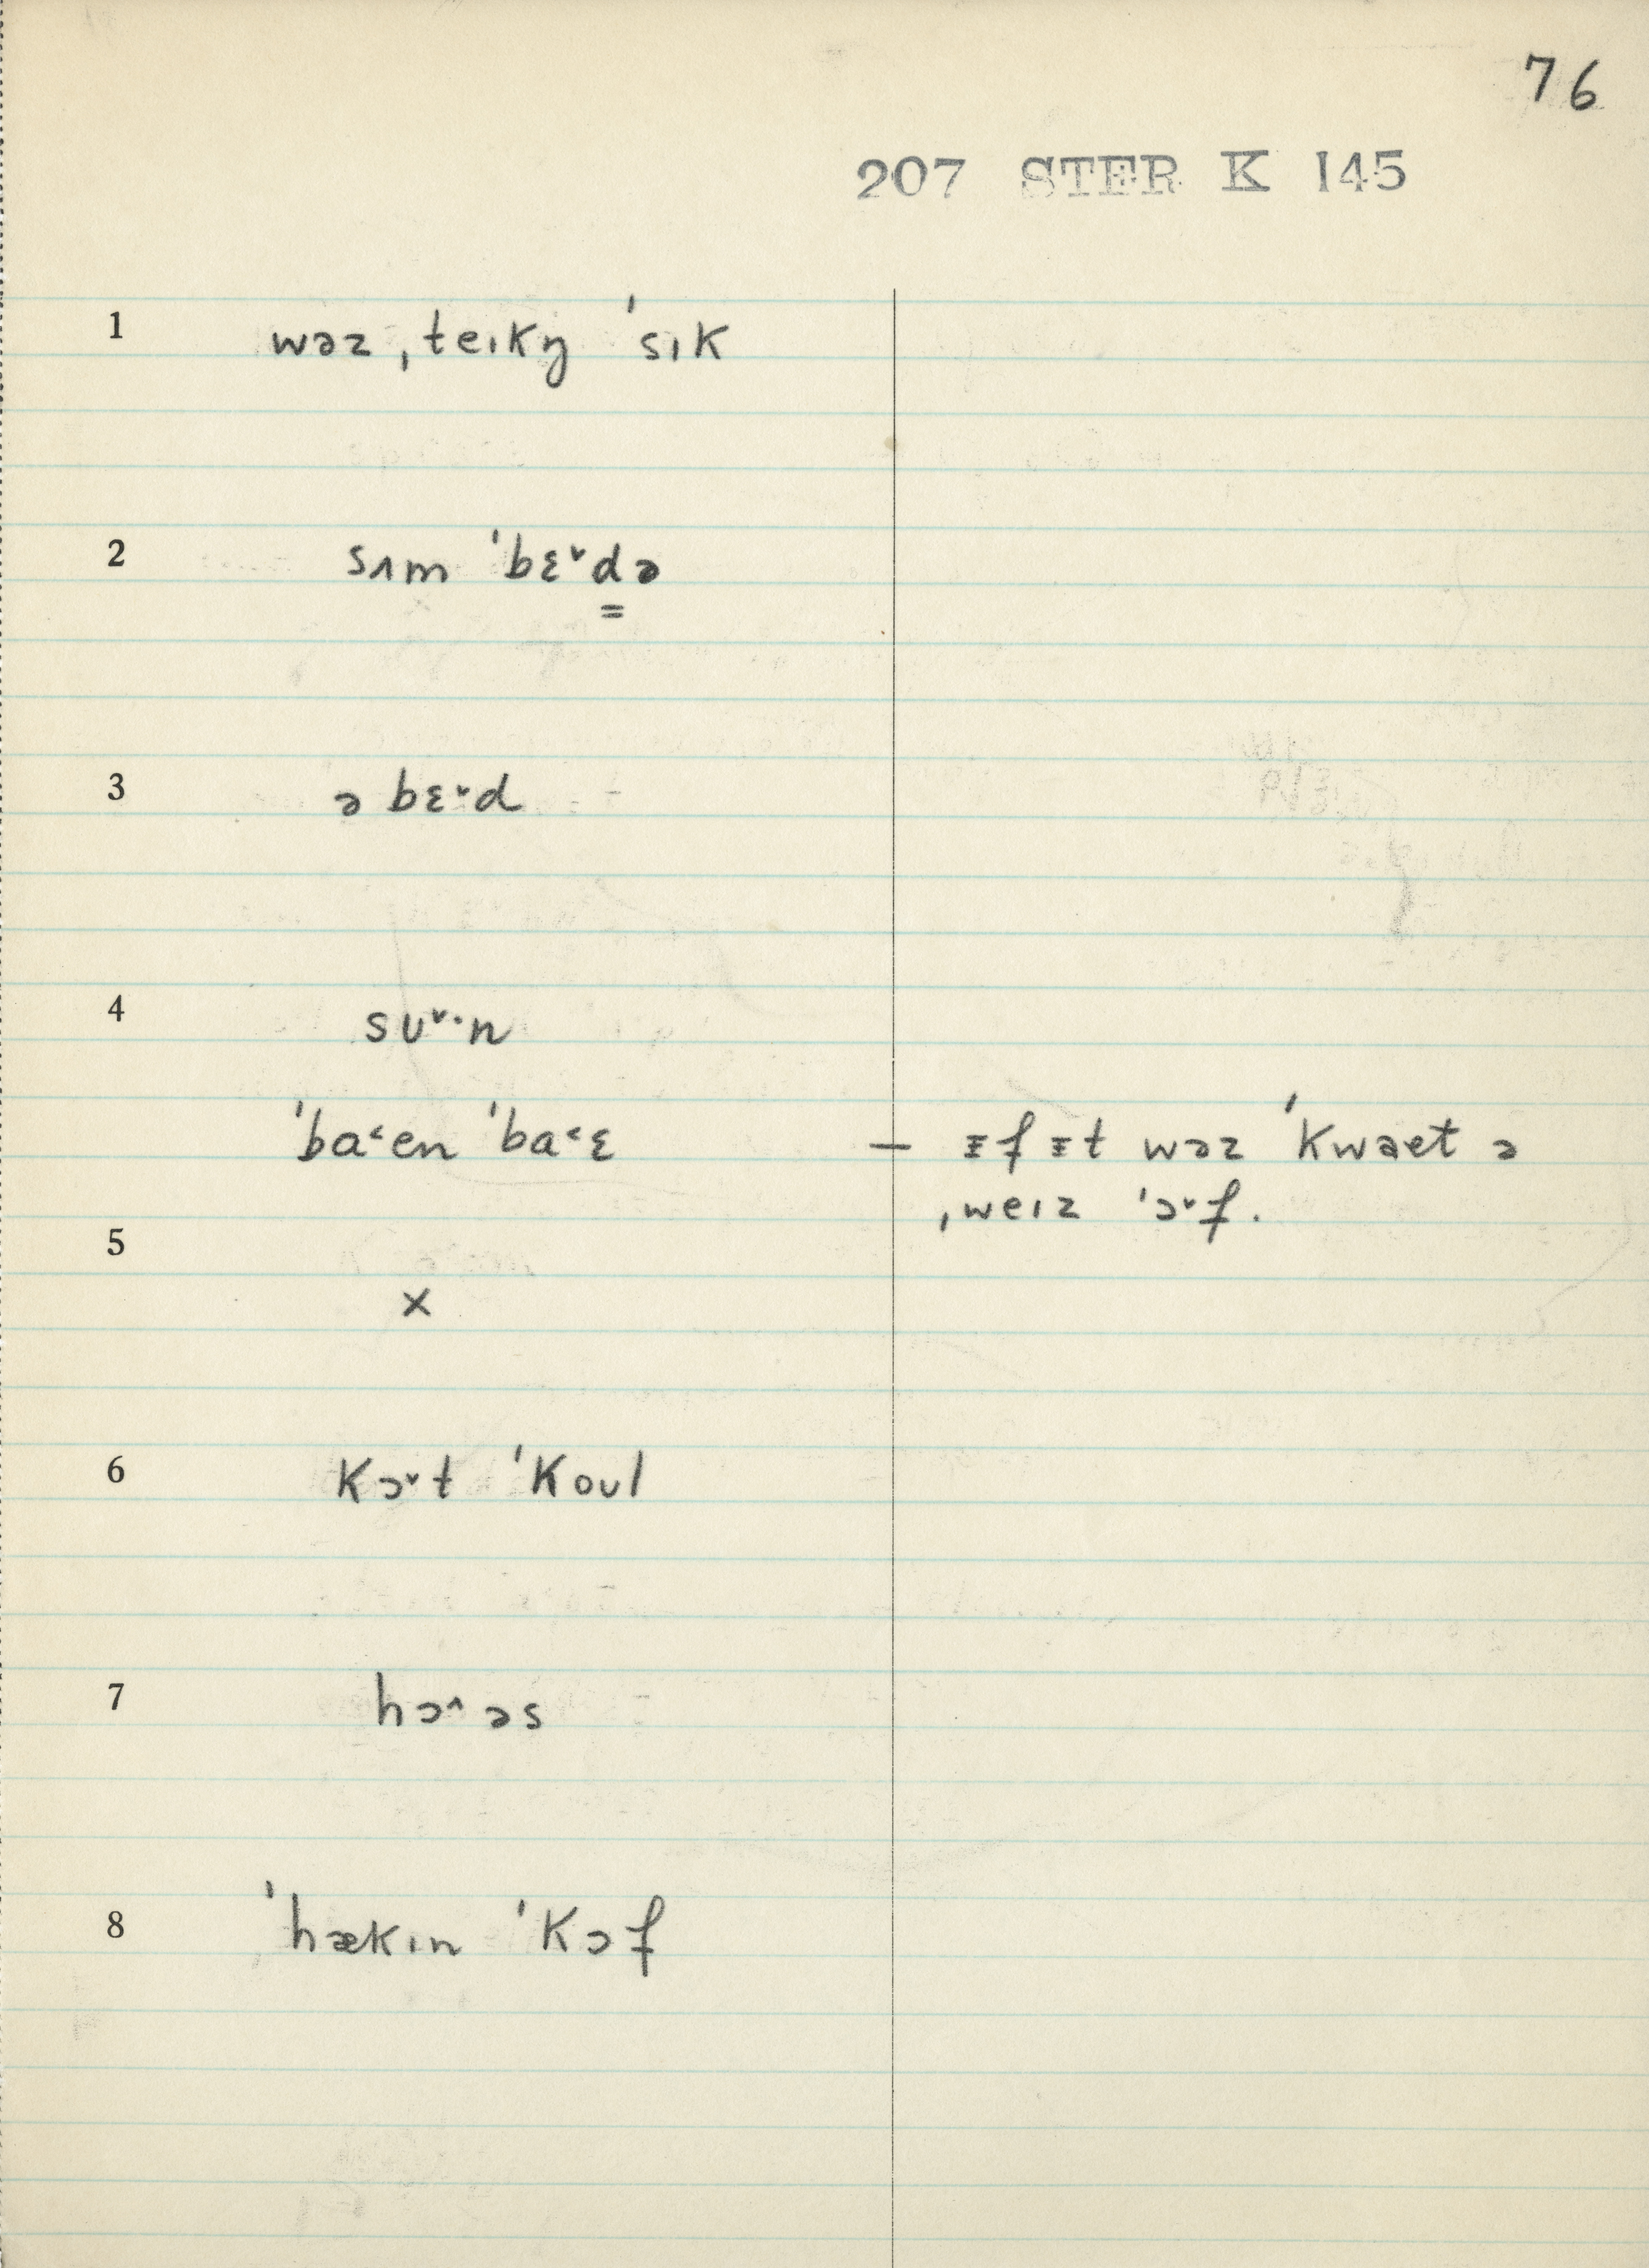 76
207 STER K 145
1 wəz ˌteɪkŋ̩ ˈsɪk
2 sʌm ˈbɛ˅d̳ə
3 ə bɛ˅d
4 sʊ˅·n
ˈba˂en ˈba˂ɛ — ɪ̵f ɪ̵t wəz ˈkwaet ə
ˌweɪz ˈɔ˅f.
5
×
6 kɔ˅t ˈkoʊl
7 hɔ˄əs
8 ˈhækɪn ˈkɔf